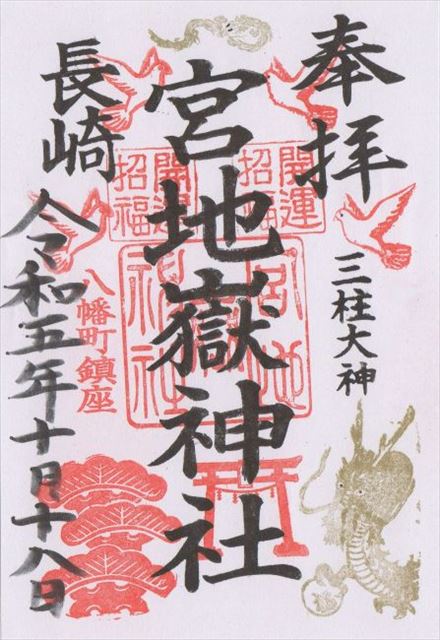 奉拝
三柱大神
開運
招福
宮地嶽神社
開運
招福
宮地
神社
長崎
八幡町鎮座
令和五年十月十八日